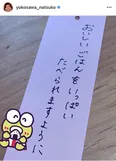 yokosawa_natsuko
おいしいごはんを いっぱい
たべられますように